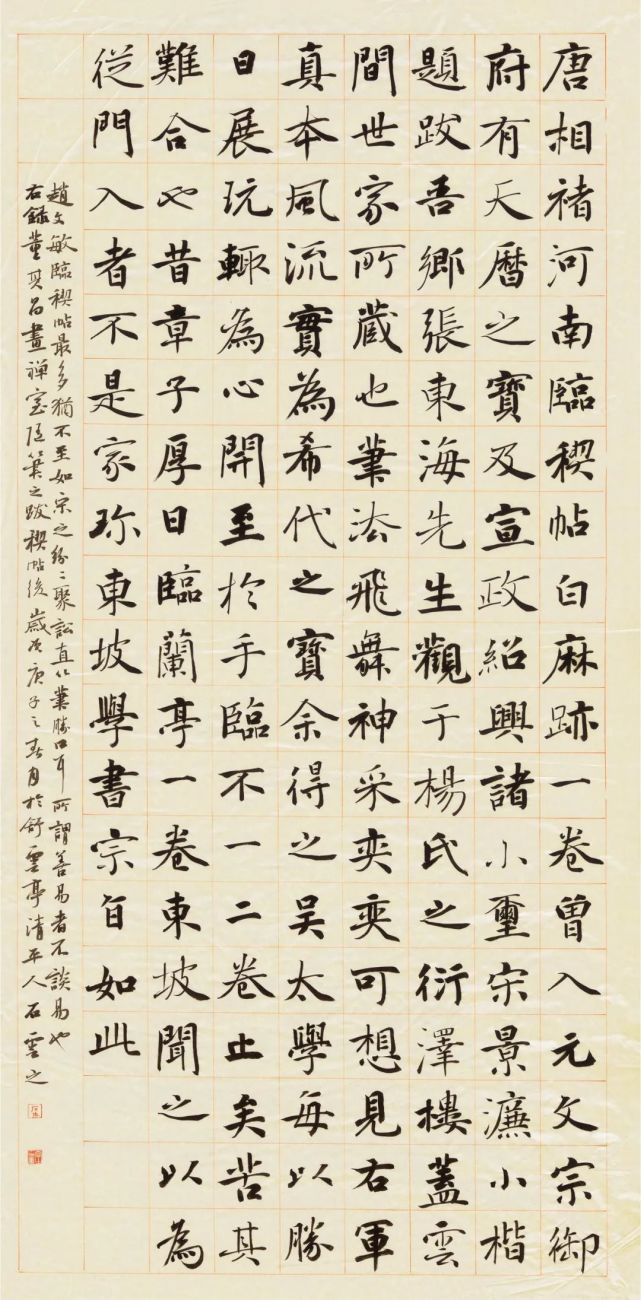 唐相褚河南臨稧帖白麻跡一卷曾入元文宗御
府有天曆之寶及宣政紹興諸小璽宋景濂小楷
題跋吾鄉張東海先生觀于楊氏之衍澤樓蓋雲
間世家所藏也筆法飛舞神采奕奕可想見右軍
真本風流實為希代之寶余得之吴太學每以勝
日展玩輒為心開至於手臨不一二卷止矣苦其
難合也昔章子厚日臨蘭亭一卷東坡聞之以為
從門入者不是家珎東坡學書宗旨如此
趙文敏臨稧帖最多猶不至如宋之紛〻聚訟直以筆勝口耳所謂善易者不談易也
右錄董其昌畫禅室随筆之跋稧帖後歲次庚子之春月於舒雲亭清平人石雲之